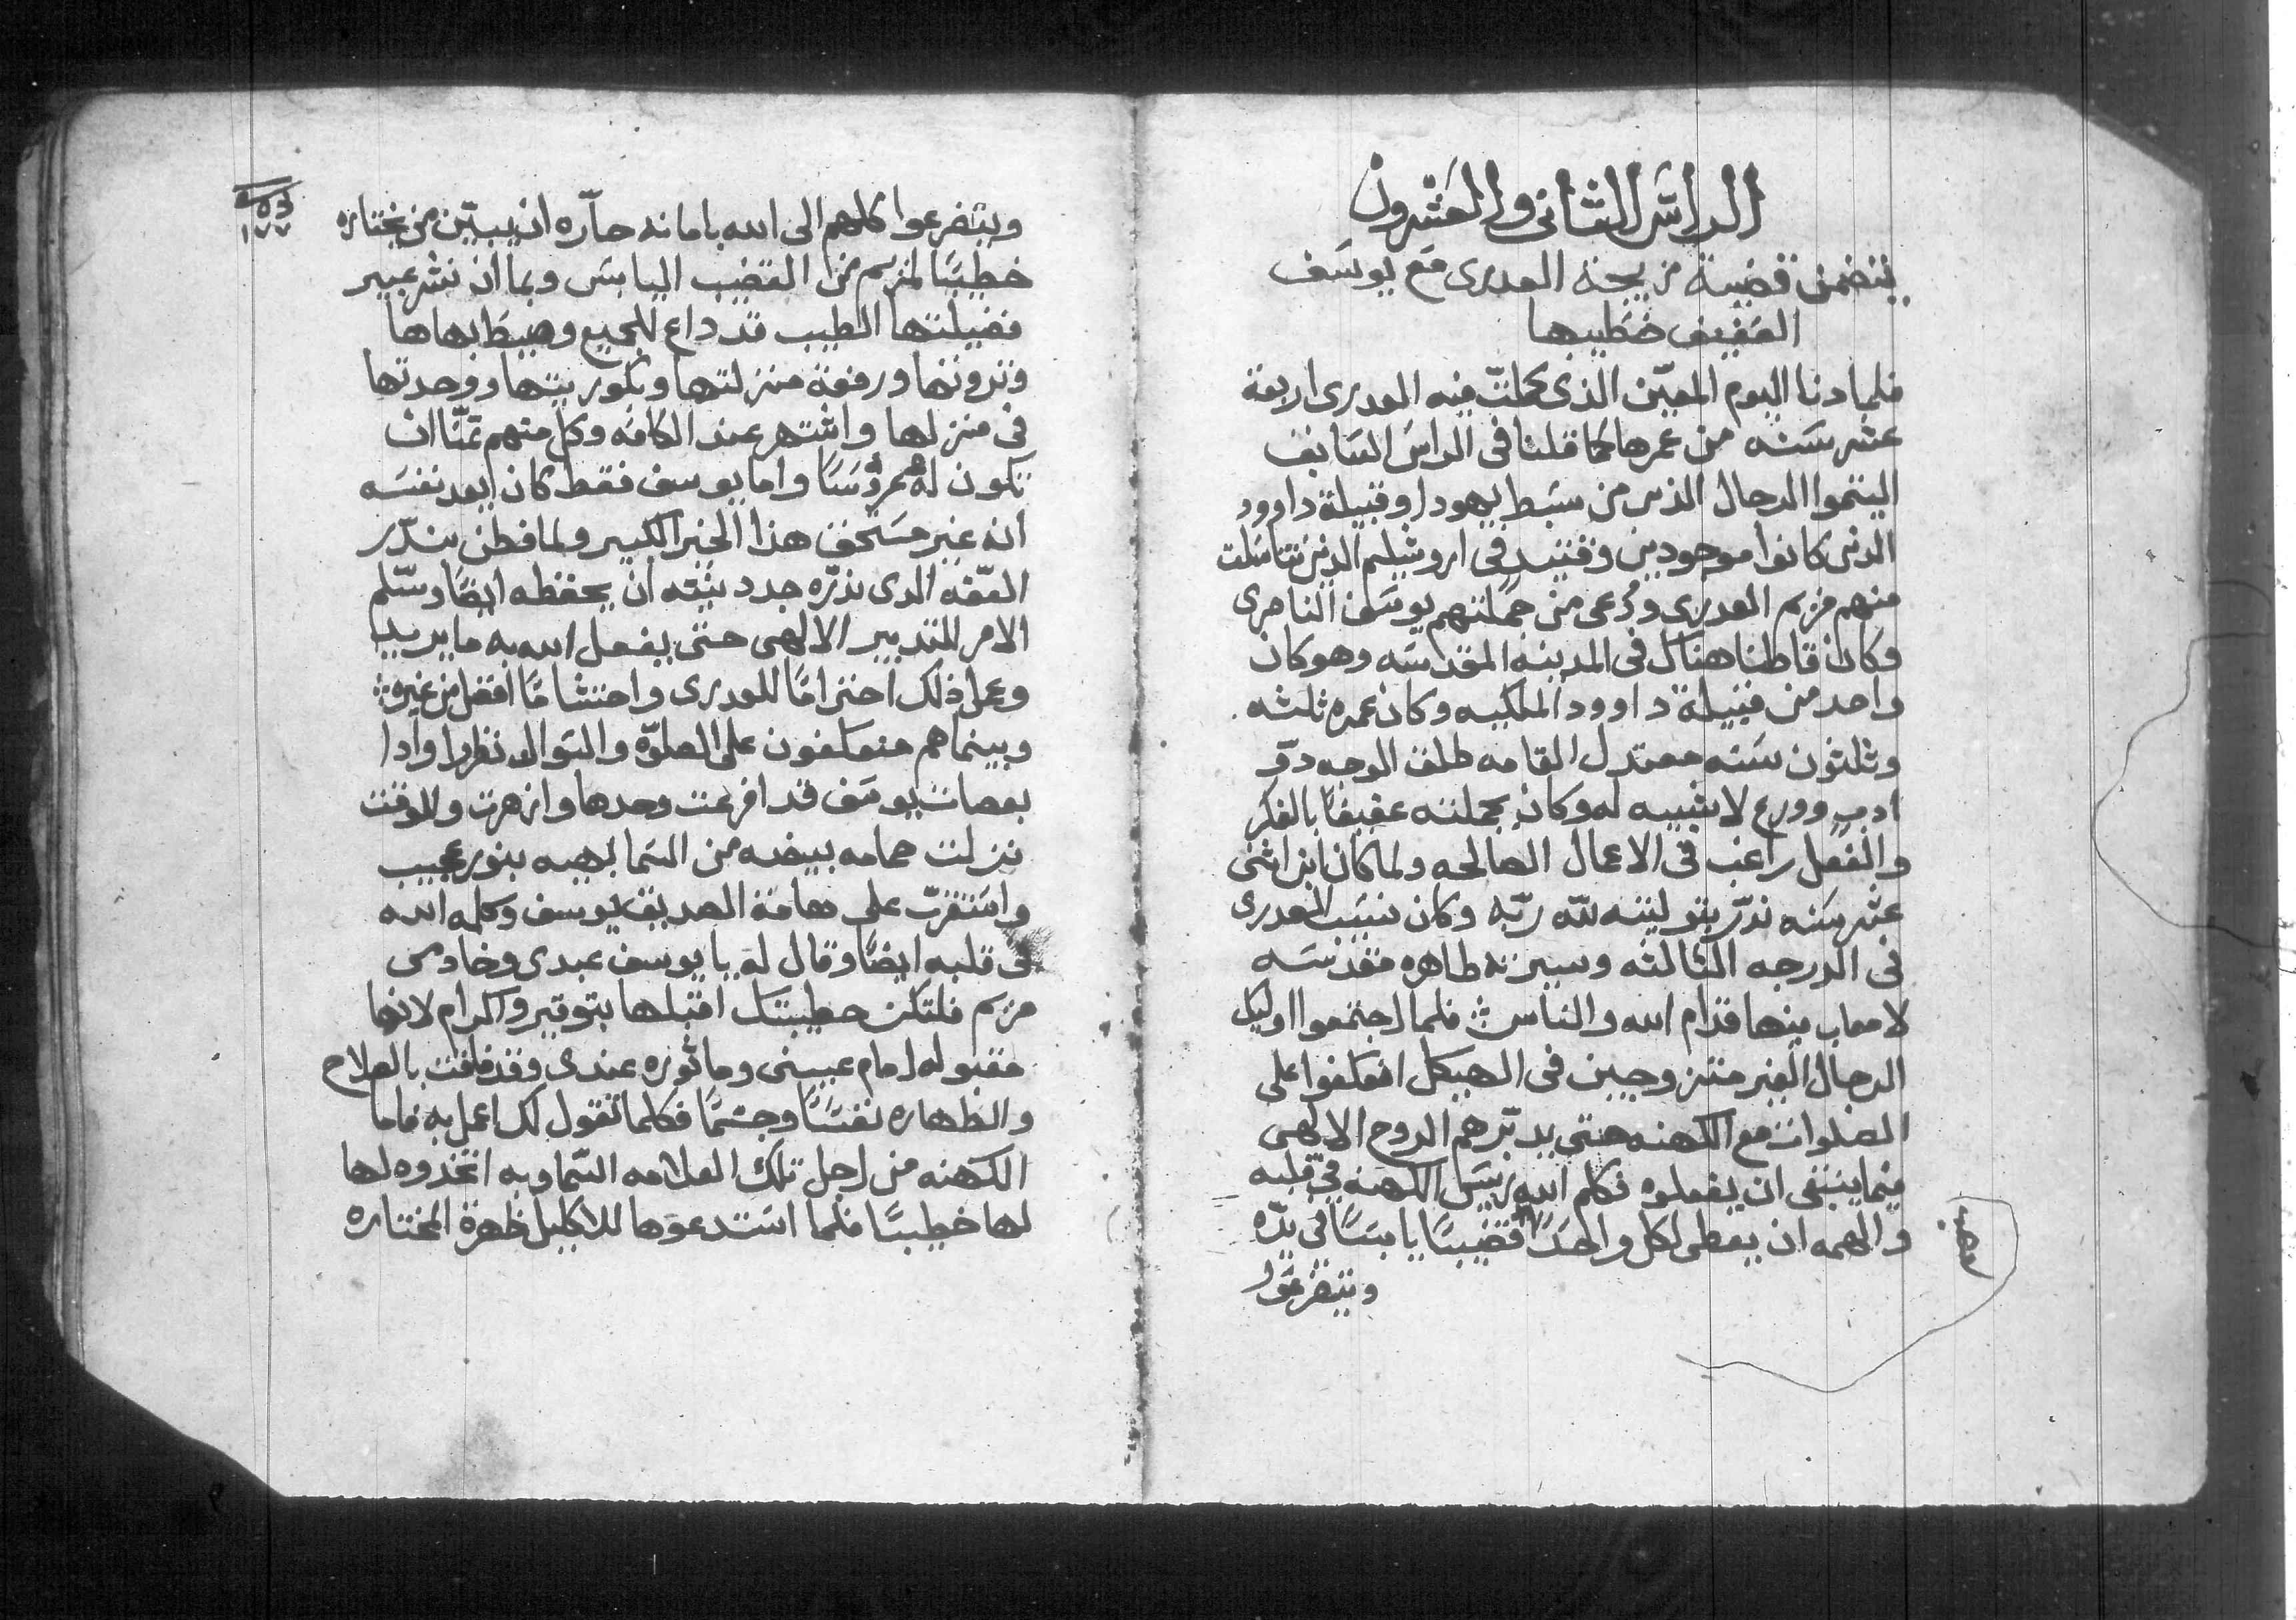 الراس الثانى والعشرون
يتضمن قضية زيجة العدرى مع يوسف
العفيف خطيبها
فلما دنا اليوم المعيّن الذى كملت فيه العدرى اربعة
عشر سنه من عمرها كما قلنا فى الراس السابق
اليتموا الرجال الذين من سبط يهودا وقبيلة داوود
الذين كانوا موجودين وقتيدٍ فى اروشليم الذين تناسلت
منهم مريم العدرى ودُعى من جملتهم يوسف الناصرى
وكان قاطنا هناك فى المدينه المقدسه وهو كان
واحد من قبيلة داوود الملكيه وكان عمره ثلثه
وثلثون سنه معتدل القامه طلق الوجه دو
ادبٍ وورع لا شبيه له وكان بجملته عفيفاً بالفكر
والفعل راغب فى الاعمال الصالحه ولما كان ابن اثنى
عشر سنه ندر بتوليته للّه ربّه وكان نسيب العدرى
فى الدرجه الثالثه وسيرته طاهره مقدسه
لا معاب فيها قدام الله والناس فلما اجتمعوا اوليك
الرجال الغير متزوجين فى الهيكل اعتكفوا على
الصلوات مع الكهنه حتى يدبّرهم الروح الالهى
فيما ينبغى ان يفعلوه فكلم الله رييس الكهنه فى قلبه
والهمه ان يعطى لكل واحد قضيبًا يابسًا فى يدّه
ويتضرعوا
ويتضرعوا كلهم الى الله بامانه حآره ان يبيّن من يختاره
خطيبًا لمريم من القضيب اليابس وبما ان نشر عبير
فضيلتها الطيب قد داع للجميع وصيط بهاها
وثروتها ورفعة منزلتها وبكوريتها ووحدتها
فى منزلها واشتهر عند الكافه وكل منهم تمنّا ان
تكون له عروسًا واما يوسف فقط كان ابعد نفسه
انه غير مستحق هذا الخير الكبير ولما فطن بندر
العفّه الدى ندره جدد نيّته ان يحفظه ايضًا وسّلم
الامر للتدبير الالهى حتى يفعل الله به ما يريد
وعمل ذلك احترامًا للعدرى واحتشامًا افضل من غيره
وبينما هم متعكفون على الصلوّه والسوال نظروا وادا
بعصات يوسف قد افرعت وحدها وازهرت وللوقت
نزلت حمامه بيضه من السما بهيه بنور عجيب
واستقرّت على هامة الصديق يوسف وكلمه الله
فى قلبه ايضًا وقال له يا يوسف عبدى وخادمى
مريم فلتكن خطيبتك اقبلها بتوقير واكرام لانها
مقبوله امام عينى وماثوره عندى وقد فاقت بالصلاح
والطهاره نفسًا وجسمًا فكلما تقول لك اعمل به فاما
الكهنه من اجل تلك العلامه السماويه اتخدوه لها
لها خطيبًا فلما استدعوها للاكليل ظهرة المختاره